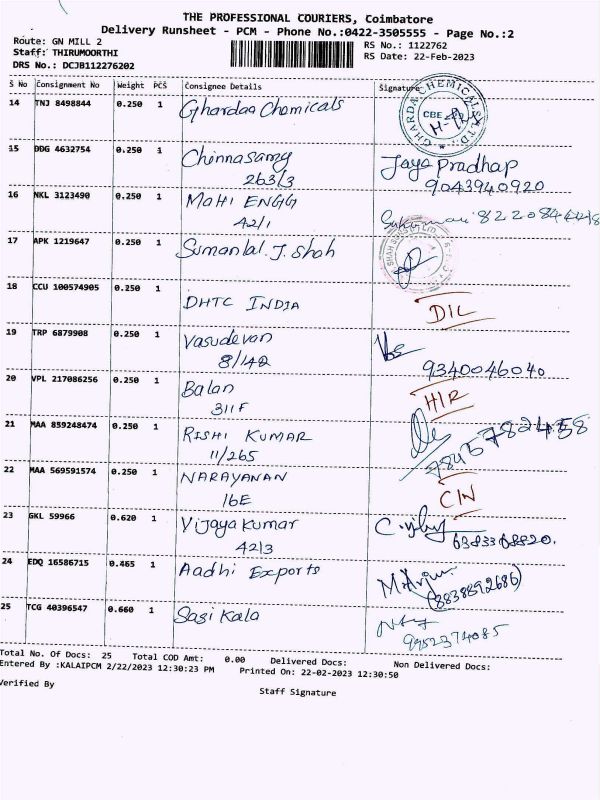 THE PROFESSIONAL COURIERS, Coimbatore
Delivery Runsheet - PCM - Phone No.:0422-3505555 - Page No.:2
Route: GN MILL 2
RS No.: 1122762
Staff: THIRUMOORTHI
RS Date: 22-Feb-2023
DRS No.: DCJB112276202
S No Consignment No Weight PCS Consignee Details Signature
14 TNJ 8498844 0.250 1 Gharda Chemicals
GHARDA CHEMICALS LTD. CBE
15 DDG 4632754 0.250 1 Chinnasamy Jaya Pradhap
263/3 9043940920
16 NKL 3123490 0.250 1 MOHI ENGG
42/1
17 APK 1219647 0.250 1 Sumanlal. J. Shah
18 CCU 100574905 0.250 1
DHTC INDIA DIL
19 TRP 6879908 0.250 1 Vasudevan
8/142 9340046040
20 VPL 217086256 0.250 1 Balan H/R
311F
21 MAA 859248474 0.250 1 RISHI KUMAR
11/265
22 MAA 569591574 0.250 1 NARAYANAN
16E C/N
23 GKL 59966 0.620 1 Vijayakumar
42/3
24 EDQ 16586715 0.465 1 Aadhi Exports
(8838892686)
25 TCG 40396547 0.660 1 Sasi Kala
9952374085
Total No. Of Docs: 25 Total COD Amt: 0.00 Delivered Docs: Non Delivered Docs:
Entered By :KALAIPCM 2/22/2023 12:30:23 PM Printed On: 22-02-2023 12:30:50
Verified By
Staff Signature